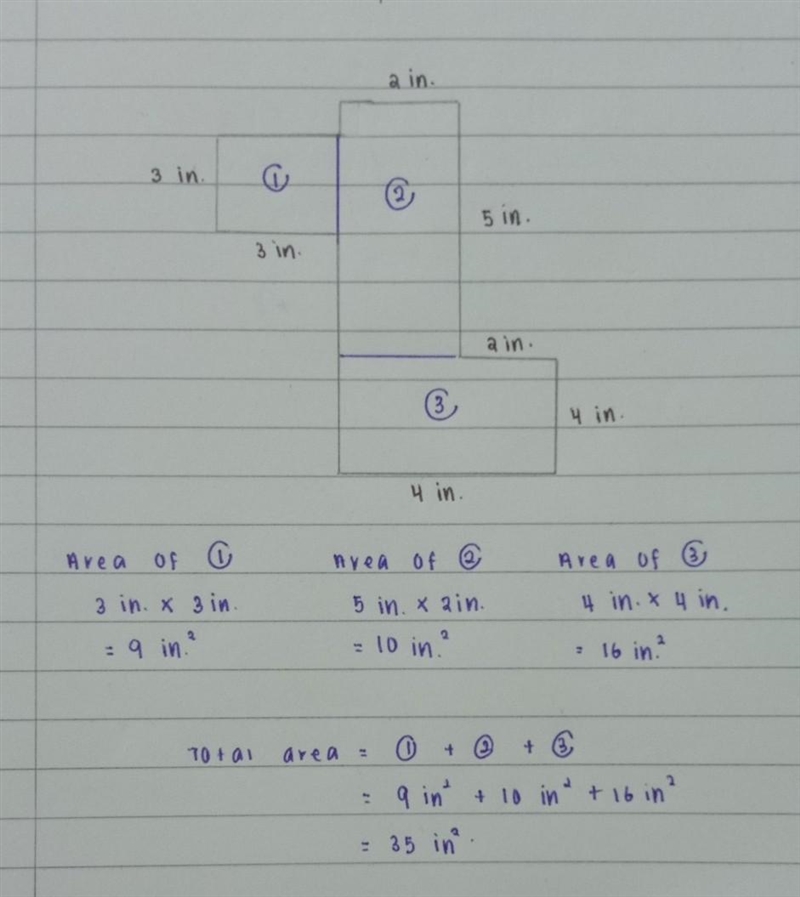 2 in.
3 in. ① ②
5 in.
3 in.
2 in.
③ 4 in.
4 in.
Area of ① Area of ② Area of ③
3 in. x 3 in. 5 in. x 2 in. 4 in. x 4 in.
= 9 in.² = 10 in.² = 16 in.²
Total area = ① + ② + ③
= 9 in² + 10 in² + 16 in²
= 35 in².